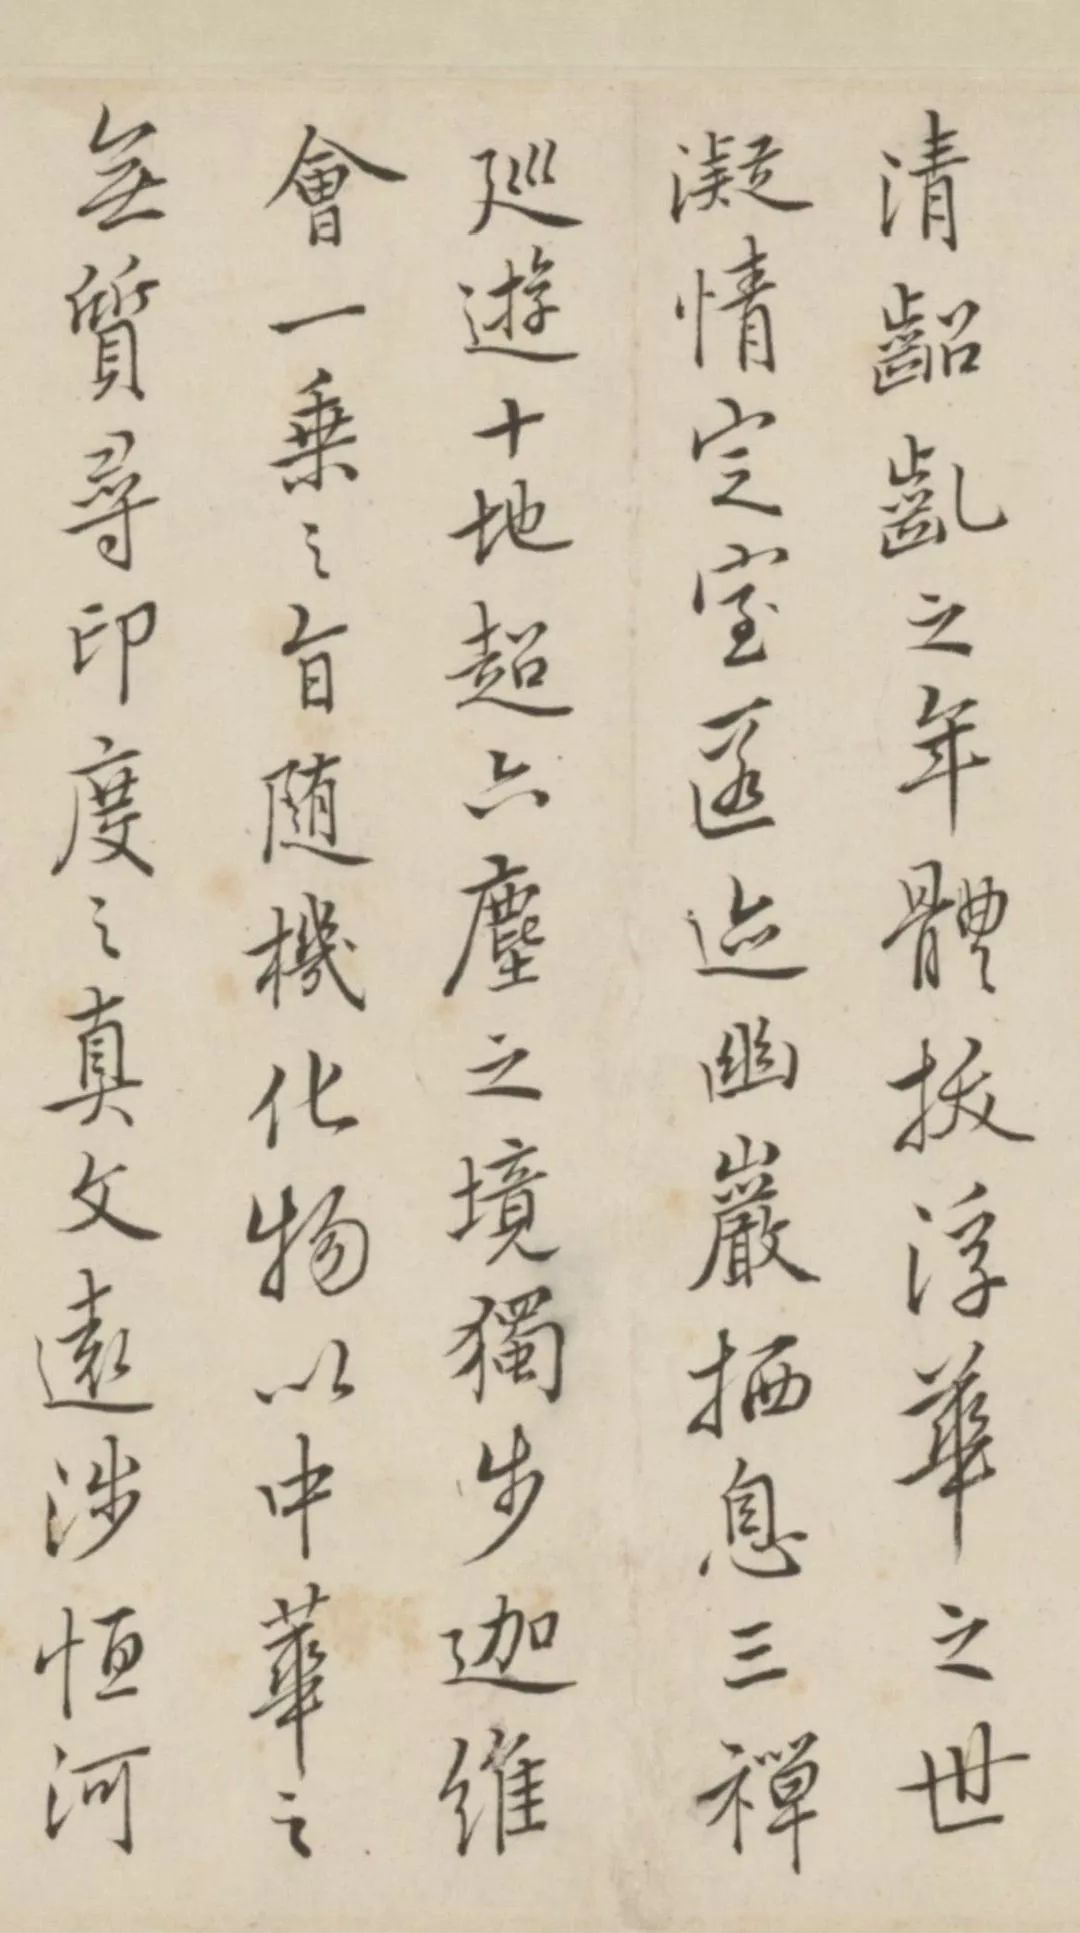 清齠齓之年體拔浮華之世
凝情定室匿迹幽巖栖息三禪
巡遊十地超六塵之境獨步迦維
會一乗之旨随機化物以中華之
無質尋印度之真文遠涉恒河